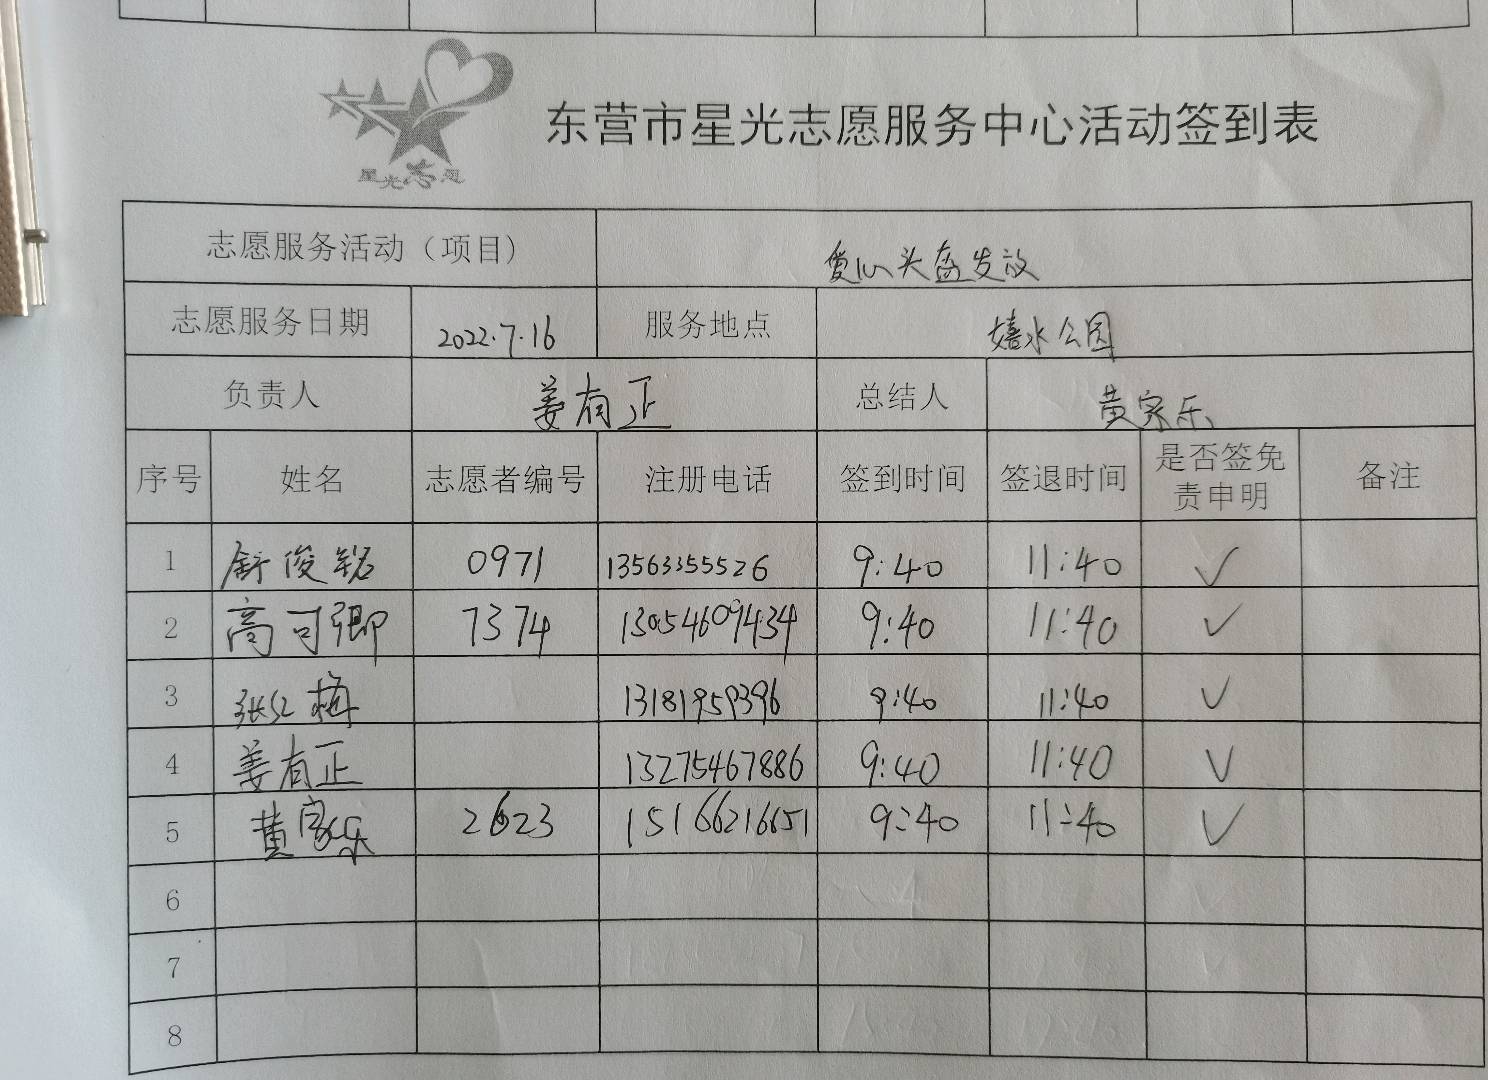 星光志愿
东营市星光志愿服务中心活动签到表
志愿服务活动（项目） 爱心头盔发放
志愿服务日期 2022.7.16 服务地点 嬉水公园
负责人 姜有正 总结人 黄家乐
序号 姓名 志愿者编号 注册电话 签到时间 签退时间 是否签免责申明 备注
1 舒俊铭 0971 13563355526 9:40 11:40 ✓
2 高可卿 7374 13054609434 9:40 11:40 ✓
3 张红梅 13181959396 9:40 11:40 ✓
4 姜有正 13275467886 9:40 11:40 ✓
5 黄家乐 2623 15166216651 9:40 11:40 ✓
6
7
8